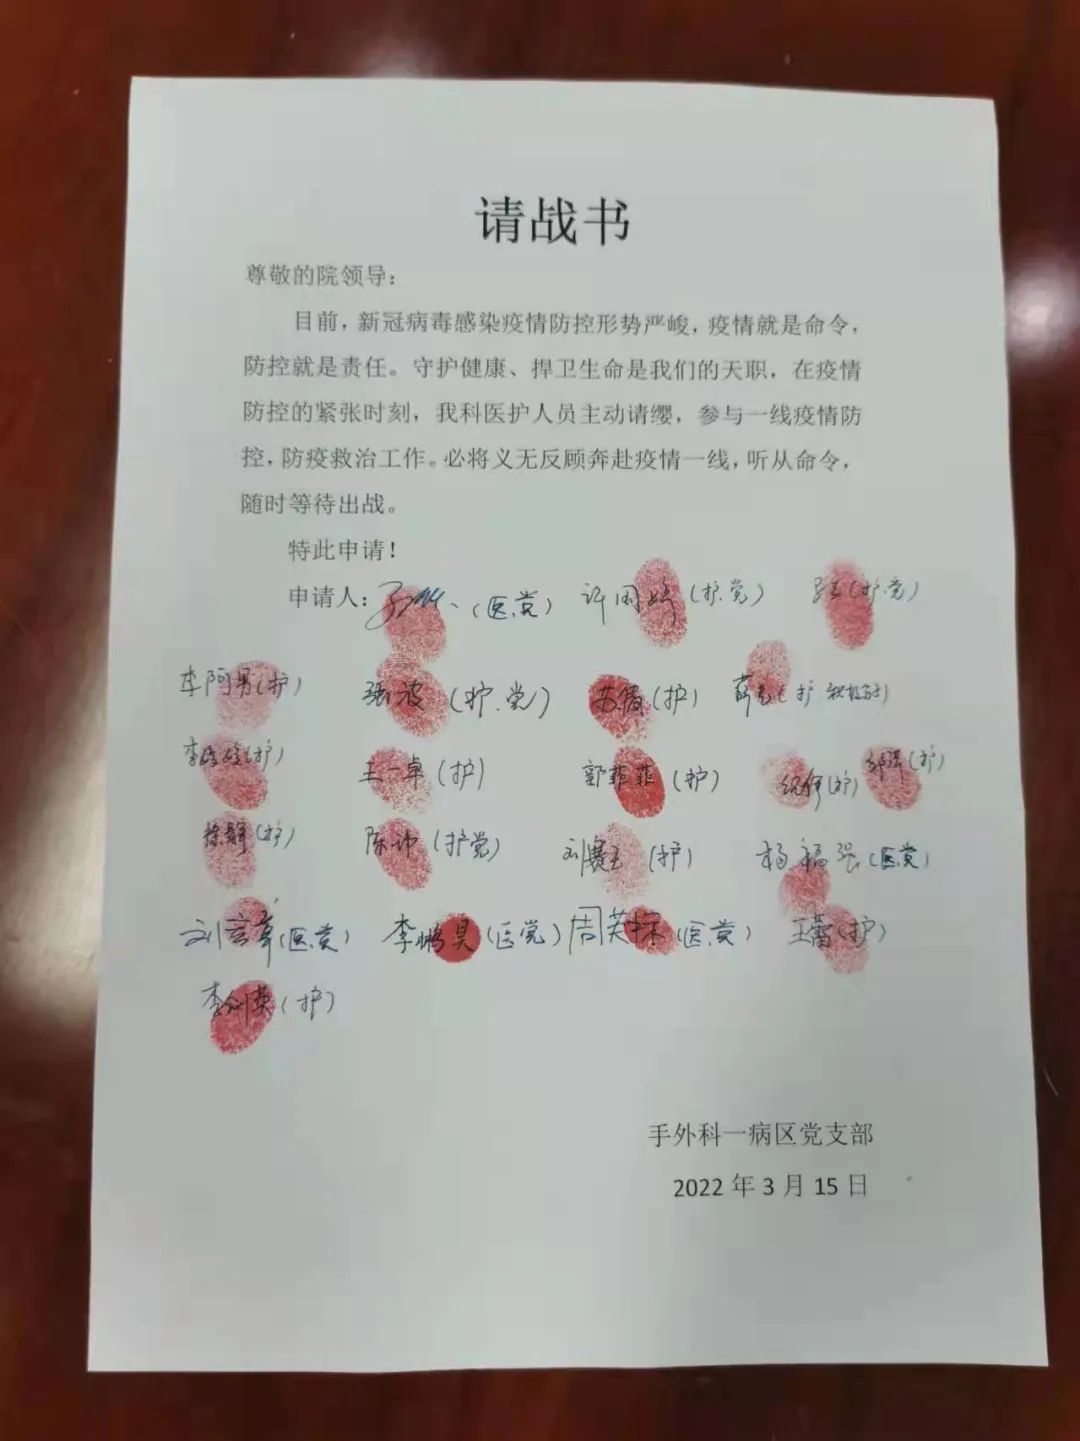 请战书
尊敬的院领导：
目前，新冠病毒感染疫情防控形势严峻，疫情就是命令，
防控就是责任。守护健康、捍卫生命是我们的天职，在疫情
防控的紧张时刻，我科医护人员主动请缨，参与一线疫情防
控，防疫救治工作。必将义无反顾奔赴疫情一线，听从命令，
随时等待出战。
特此申请！
申请人： （医党） 许国婷（护.党） （护.党）
李阿男（护） 张波（护.党） 苏俊（护） （护
（护） 王一卓（护） 郭菲菲（护） （护） （护）
（护） 陈坤（护党） 刘赛玉（护） 杨福强（医党）
刘京章（医.党） 李鹏昊（医党） 周芙（医.党） 王蕾（护）
（护）
手外科一病区党支部
2022 年 3 月 15 日